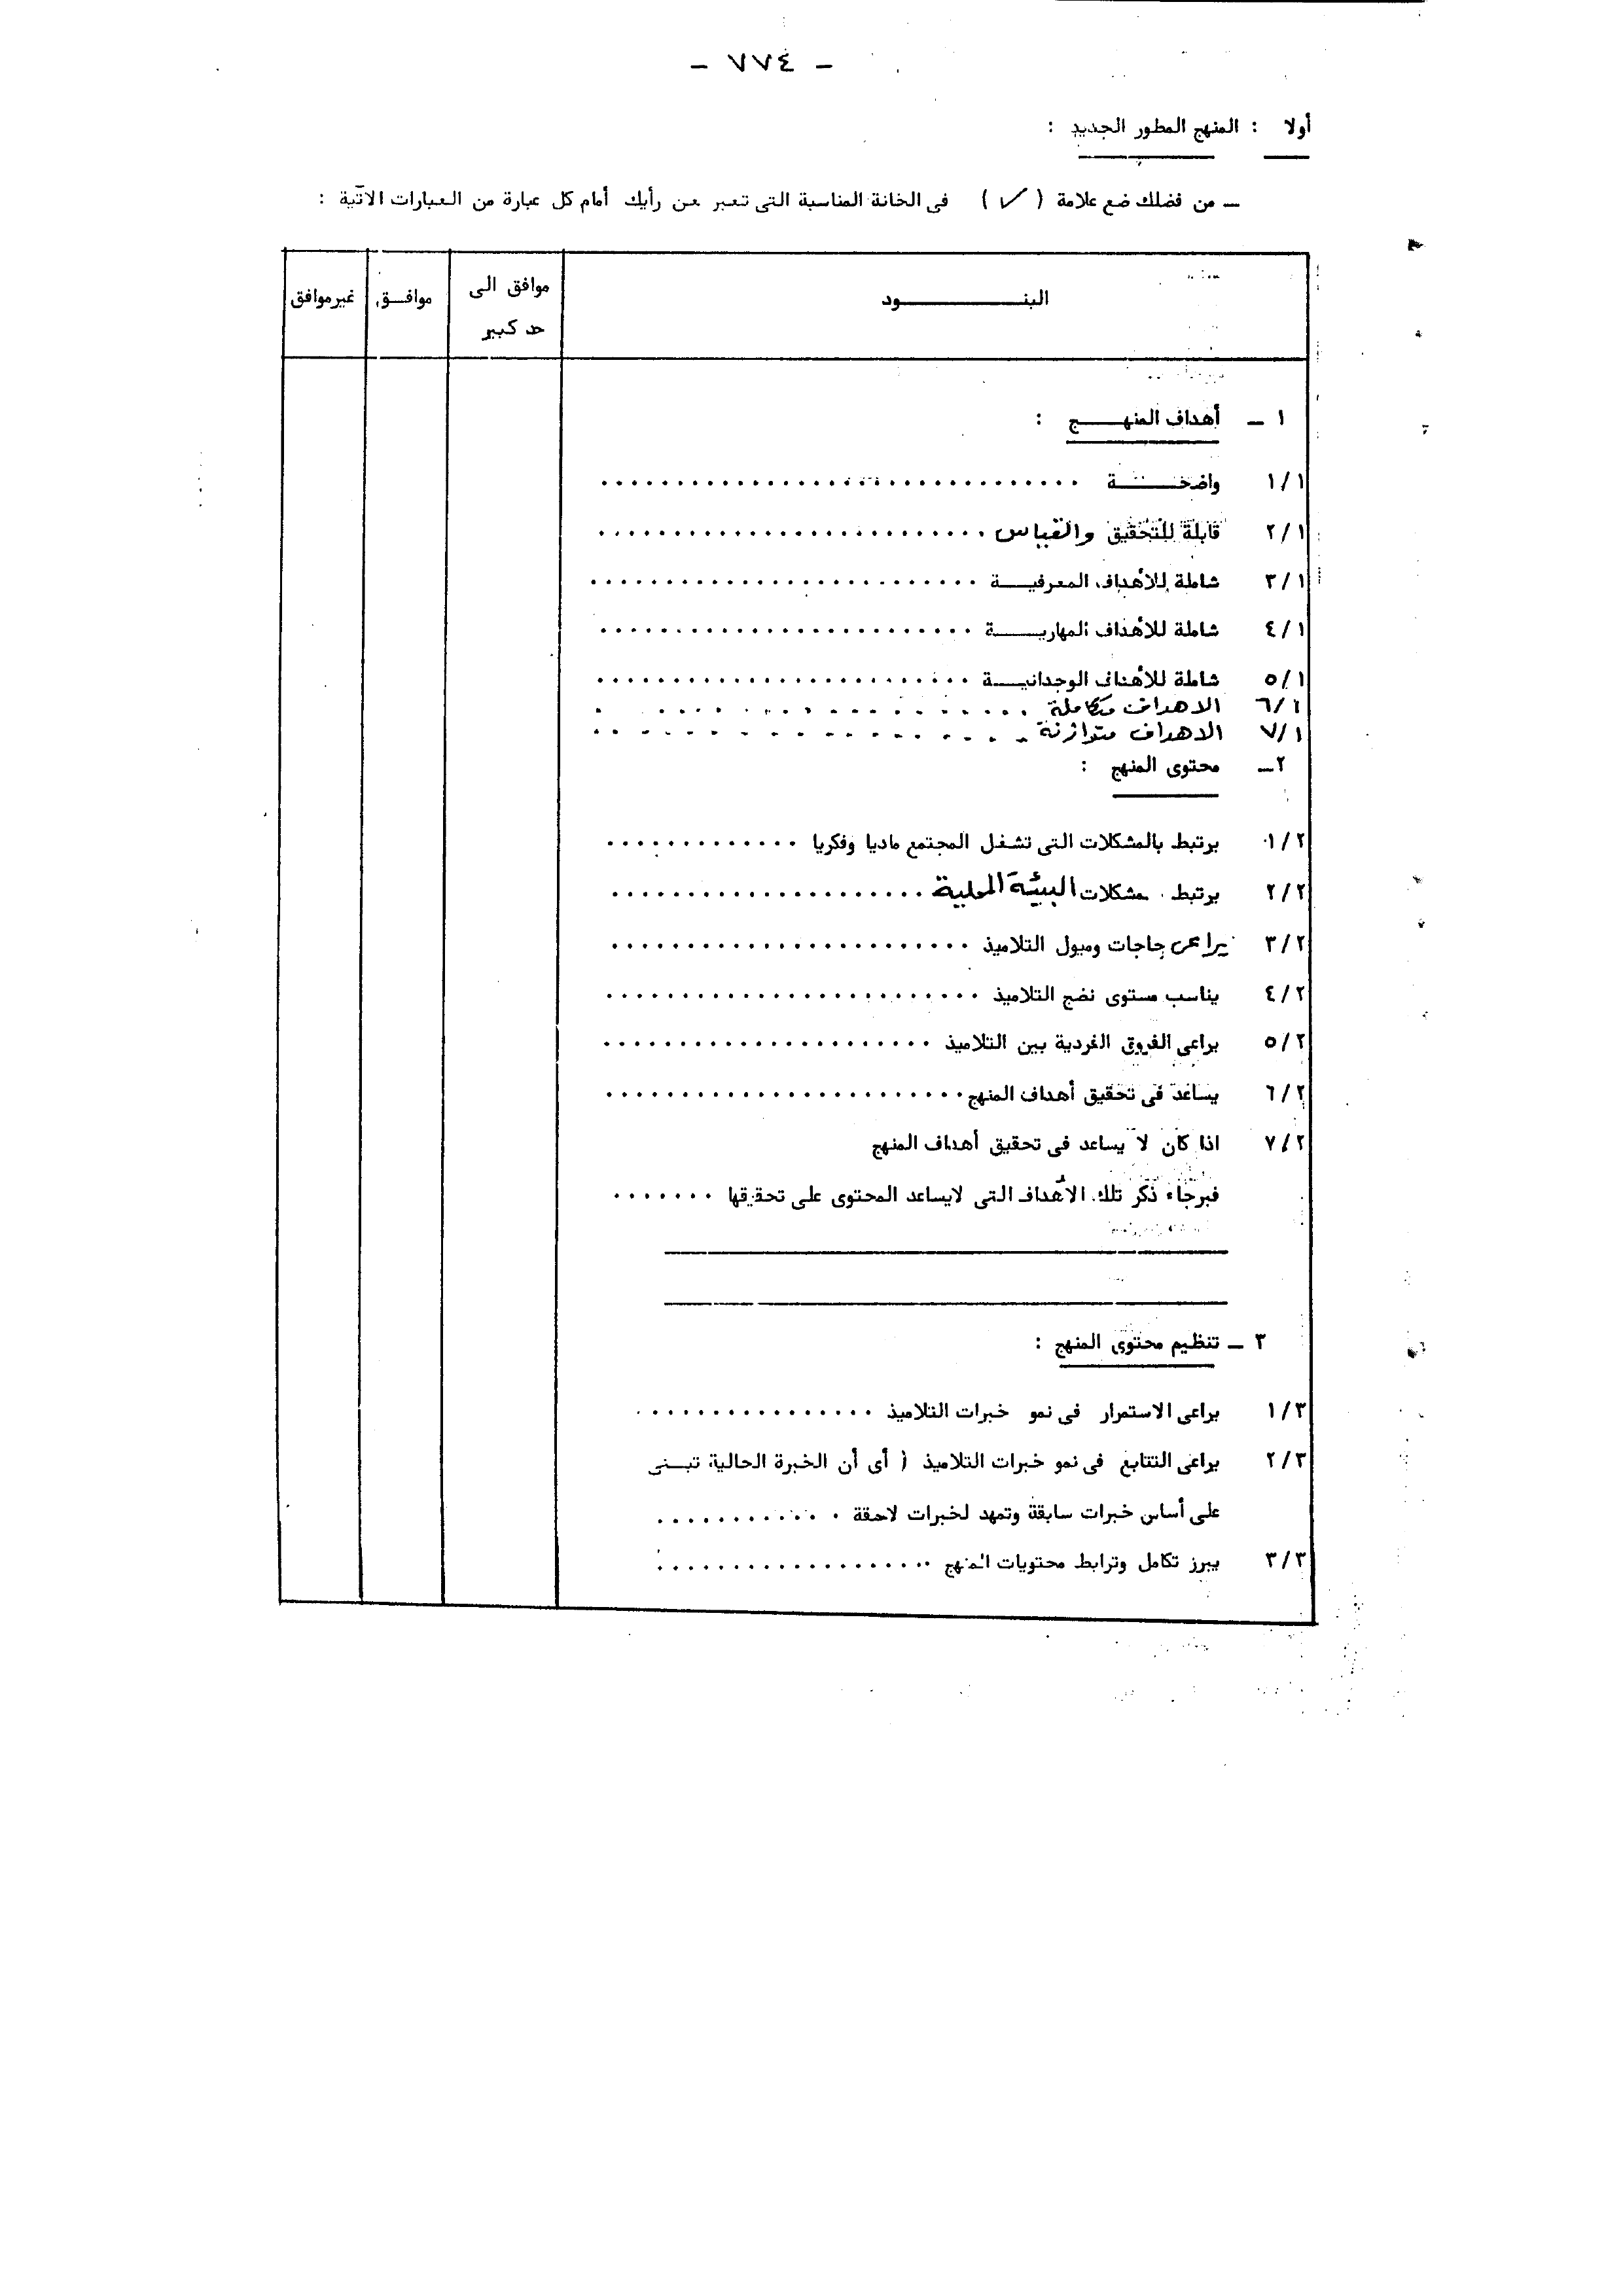 - ٧٧٤ -
أولا : المنهج المطور الجديد :
ـ من فضلك ضع علامة ( ✓ ) فى الخانة المناسبة التى تعبر عن رأيك أمام كل عبارة من العبارات الآتية :
البنــــــــود موافق الى حد كبير موافــق غير موافق
١ ـ أهداف المنهـــج :
١/١ واضحــــة ................................
٢/١ قابلة للتحقيق والقياس ..........................
٣/١ شاملة للأهداف المعرفيــة ..........................
٤/١ شاملة للأهداف المهاريــة .........................
٥/١ شاملة للأهداف الوجدانيــة .........................
٦/١ الاهداف متكاملة ..................
٧/١ الاهداف متوازنة ..................
٢ـ محتوى المنهج :
١/٢ يرتبط بالمشكلات التى تشغل المجتمع ماديا وفكريا .............
٢/٢ يرتبط بمشكلات البيئة المحلية .....................
٣/٢ يراعى حاجات وميول التلاميذ ........................
٤/٢ يناسب مستوى نضج التلاميذ .........................
٥/٢ يراعى الفروق الفردية بين التلاميذ ......................
٦/٢ يساعد فى تحقيق أهداف المنهج ........................
٧/٢ اذا كان لا يساعد فى تحقيق أهداف المنهج
فبرجاء ذكر تلك الأهداف التى لايساعد المحتوى على تحقيقها .......
٣ ـ تنظيم محتوى المنهج :
١/٣ يراعى الاستمرار فى نمو خبرات التلاميذ ................
٢/٣ يراعى التتابع فى نمو خبرات التلاميذ ( أى أن الخبرة الحالية تبــنى
على أساس خبرات سابقة وتمهد لخبرات لاحقة ............
٣/٣ يبرز تكامل وترابط محتويات المنهج ...................